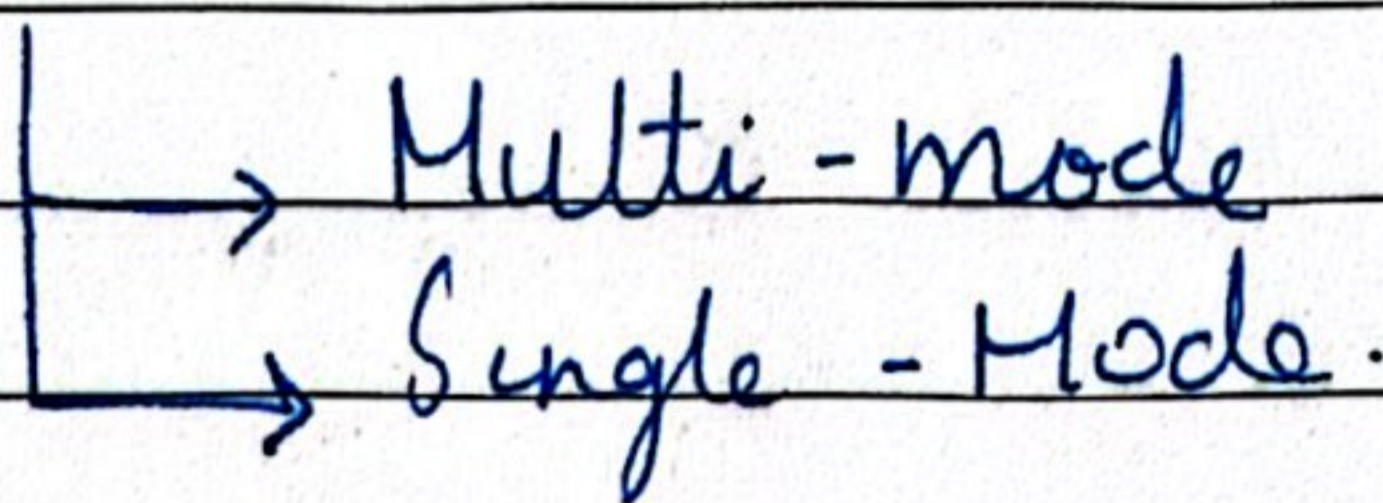 → Multi-mode
→ Single-Mode.